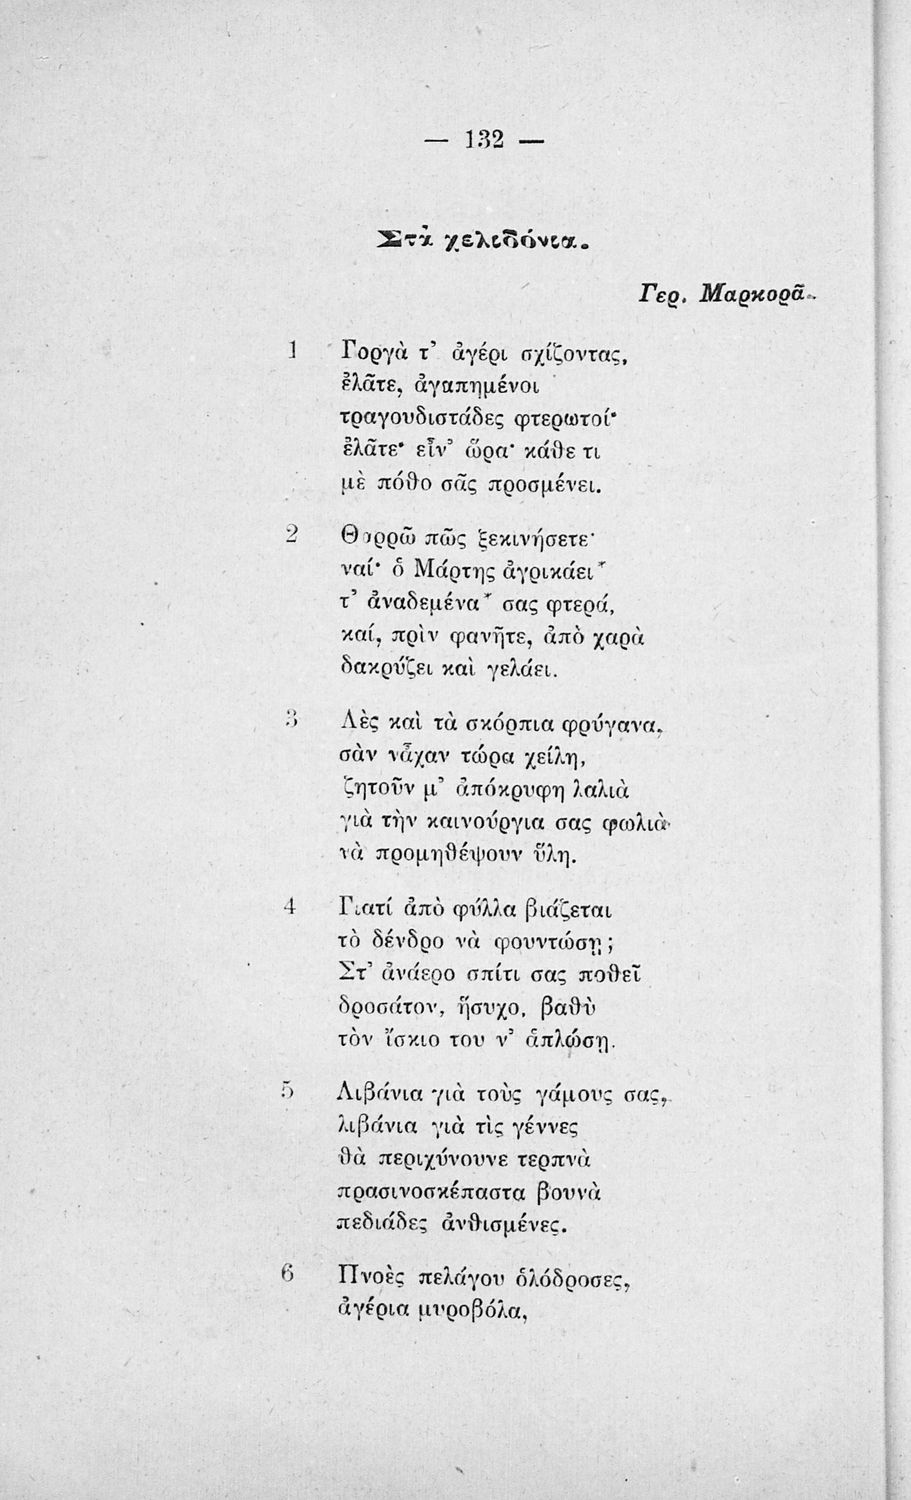 — 132 —
Στὰ χελιδόνια.
Γερ. Μαρκορᾶ.
1 Γοργὰ τ’ ἀγέρι σχίζοντας,
ἐλᾶτε, ἀγαπημένοι
τραγουδιστάδες φτερωτοί·
ἐλᾶτε· εἶν’ ὥρα· κάθε τι
μὲ πόθο σᾶς προσμένει.
2 Θαρρῶ πῶς ξεκινήσετε·
ναί· ὁ Μάρτης ἀγρικάει*
τ’ ἀναδεμένα* σας φτερά,
καί, πρὶν φανῆτε, ἀπὸ χαρὰ
δακρύζει καὶ γελάει.
3 Λὲς καὶ τὰ σκόρπια φρύγανα,
σὰν νἆχαν τώρα χείλη,
ζητοῦν μ’ ἀπόκρυφη λαλιὰ
γιὰ τὴν καινούργια σας φωλιὰ
νὰ προμηθέψουν ὕλη.
4 Γιατί ἀπὸ φύλλα βιάζεται
τὸ δένδρο νὰ φουντώσῃ;
Στ’ ἀνάερο σπίτι σας ποθεῖ
δροσάτον, ἥσυχο, βαθὺ
τὸν ἴσκιο του ν’ ἁπλώσῃ.
5 Λιβάνια γιὰ τοὺς γάμους σας,
λιβάνια γιὰ τὶς γέννες
θὰ περιχύνουνε τερπνὰ
πρασινοσκέπαστα βουνὰ
πεδιάδες ἀνθισμένες.
6 Πνοὲς πελάγου ὁλόδροσες,
ἀγέρια μυροβόλα,